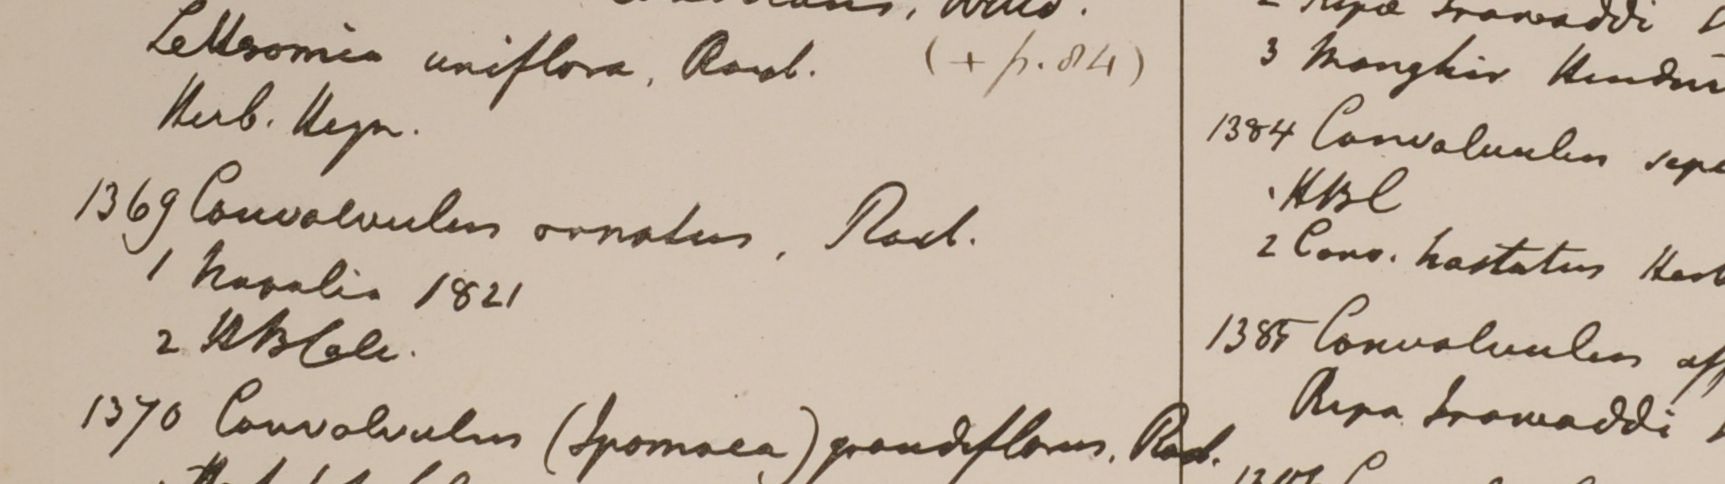 Willd.
Lettsomia uniflora, Roxb. (+ p. 84)
Herb. Heyn.
1369 Convolvulus ornatus, Roxb.
1 Napalia 1821
2 HBCalc.
1370 Convolvulus (Ipomaea) grandiflorus, Roxb.
2 Ripa Irawaddi
3 Monghir
1384 Convolvulus sepi
HBC
2 Conv. hastatus Herb
1385 Convolvulus aff
Ripa Irawaddi